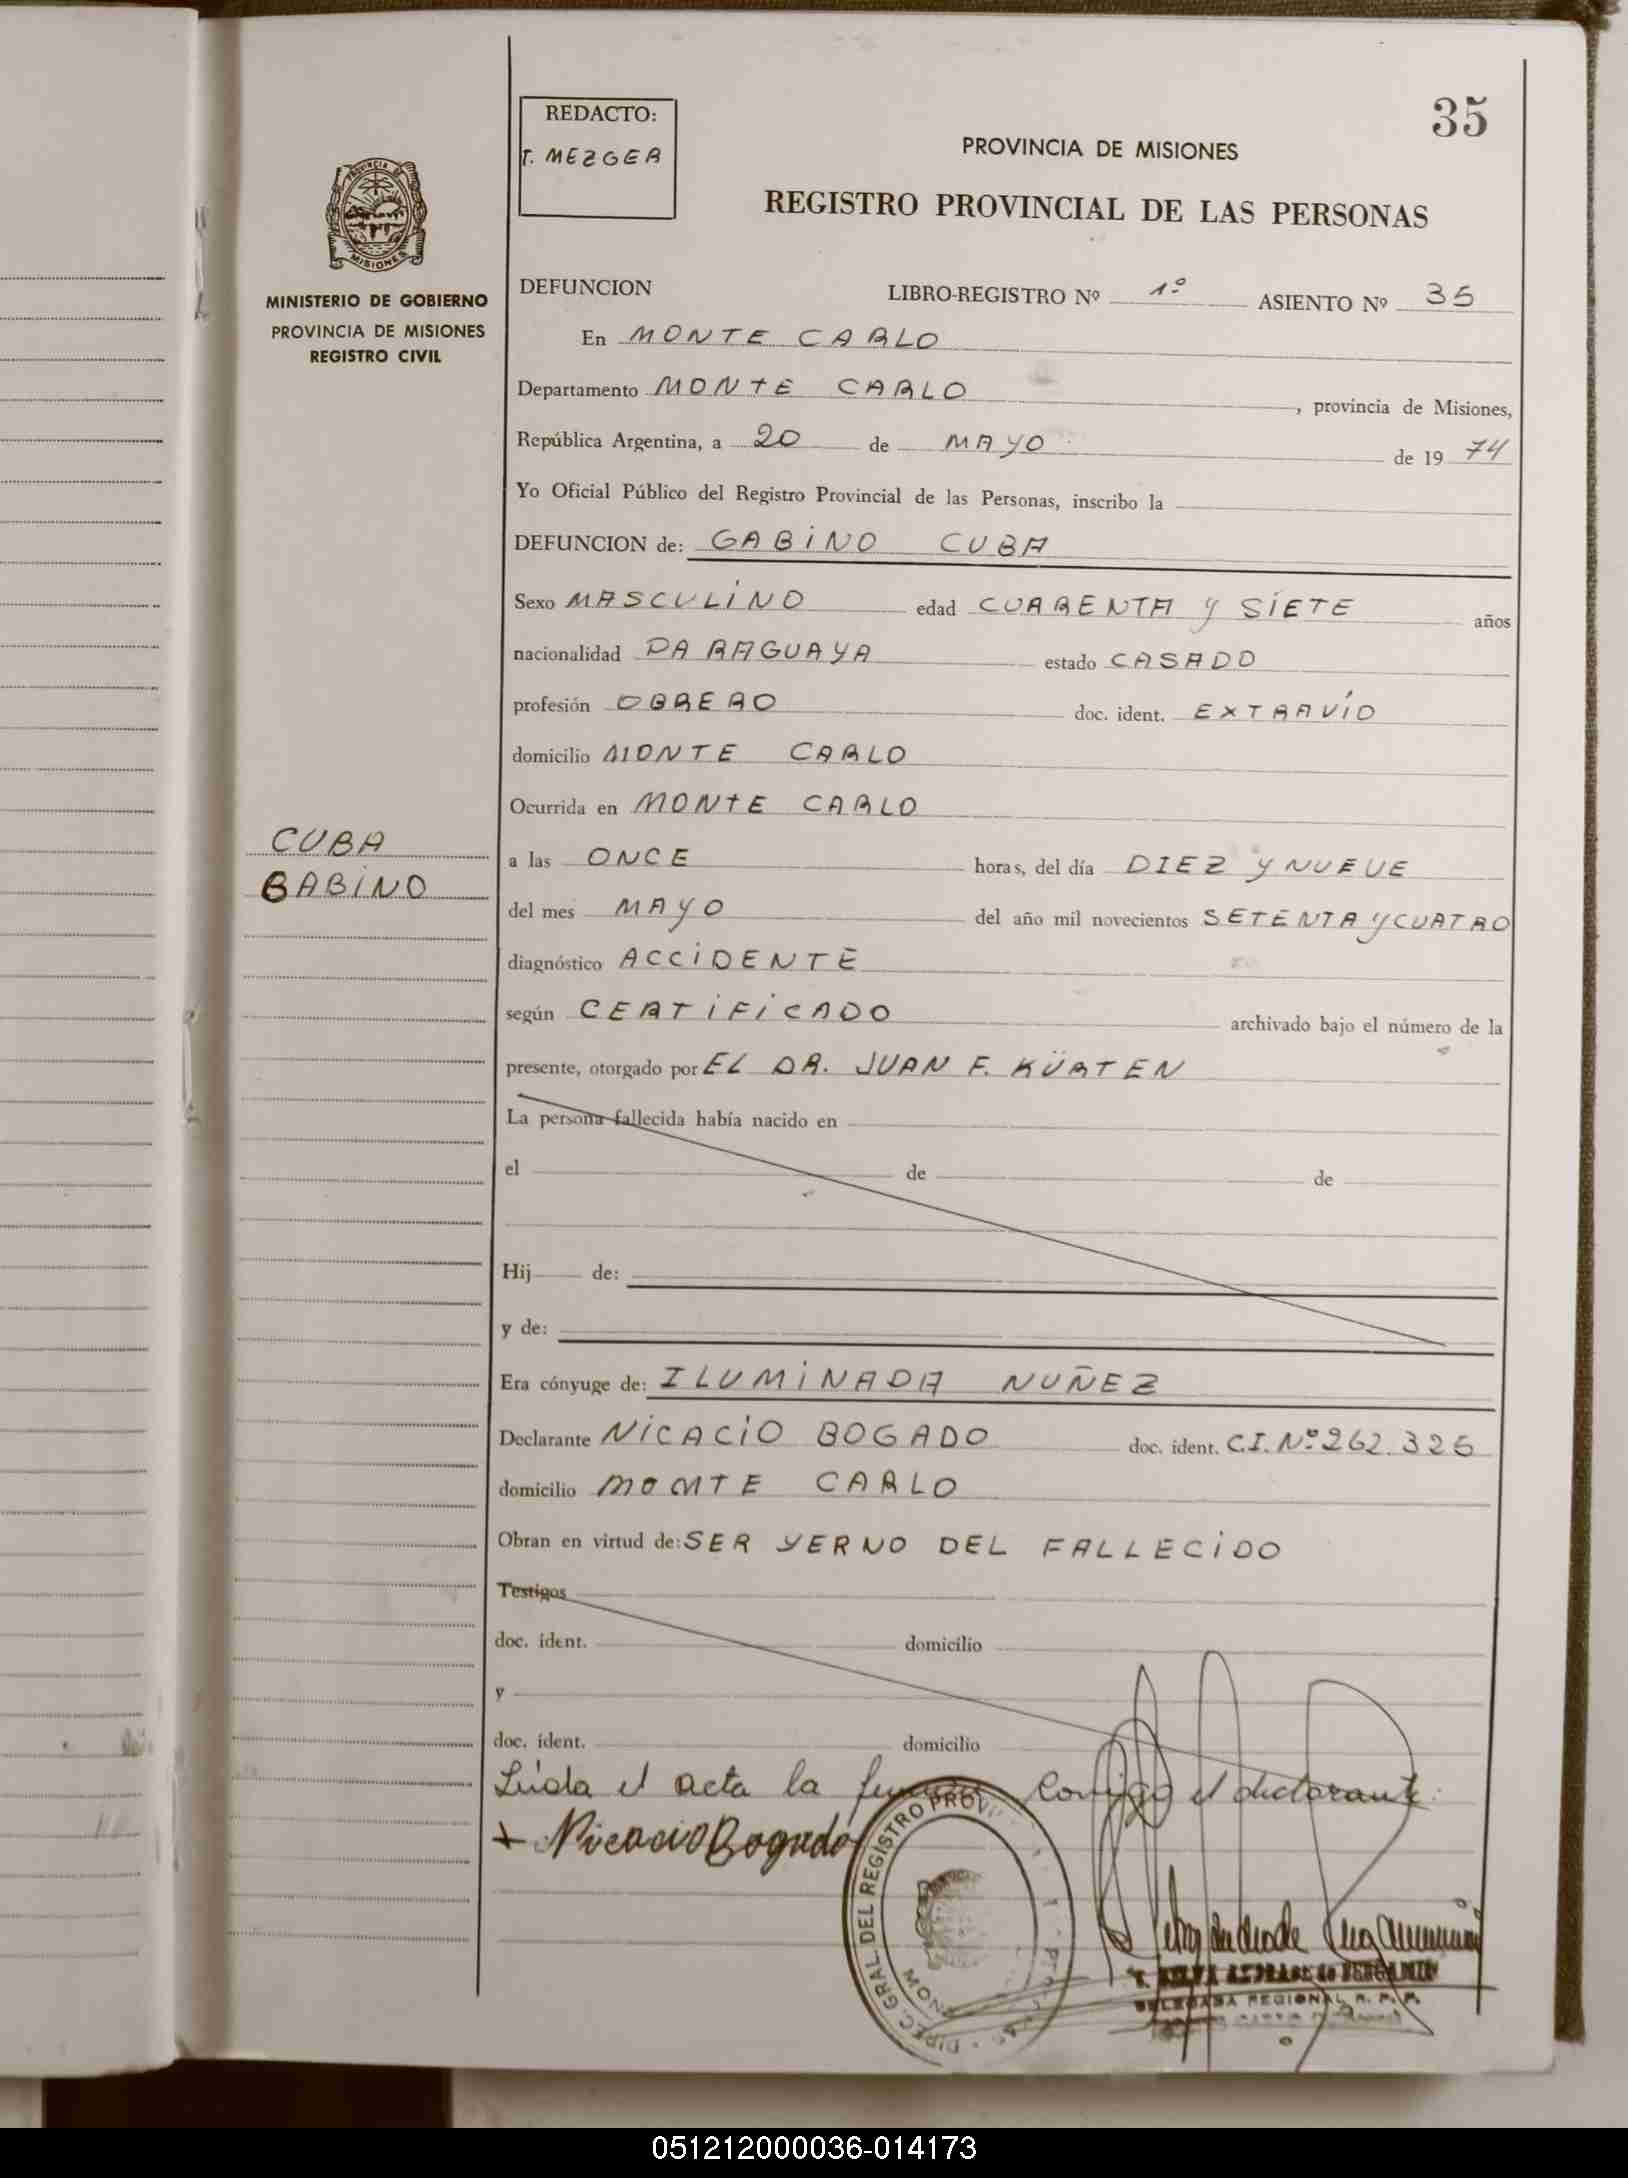 35
REDACTO:
T. MEZGER
PROVINCIA DE MISIONES
REGISTRO PROVINCIAL DE LAS PERSONAS
PROVINCIA DE
MISIONES
MINISTERIO DE GOBIERNO
PROVINCIA DE MISIONES
REGISTRO CIVIL
DEFUNCION LIBRO-REGISTRO Nº 1º ASIENTO Nº 35
En MONTE CARLO
Departamento MONTE CARLO, provincia de Misiones,
República Argentina, a 20 de MAYO de 1974
Yo Oficial Público del Registro Provincial de las Personas, inscribo la
DEFUNCION de: GABINO CUBA
Sexo MASCULINO edad CUARENTA Y SIETE años
nacionalidad PARAGUAYA estado CASADO
profesión OBRERO doc. ident. EXTRAVÍO
domicilio MONTE CARLO
Ocurrida en MONTE CARLO
CUBA
GABINO
a las ONCE horas, del día DIEZ Y NUEVE
del mes MAYO del año mil novecientos SETENTA Y CUATRO
diagnóstico ACCIDENTE
según CERTIFICADO archivado bajo el número de la
presente, otorgado por EL DR. JUAN F. KÜRTEN
La persona fallecida había nacido en
el de de
Hij de:
y de:
Era cónyuge de: ILUMINADA NUÑEZ
Declarante NICACIO BOGADO doc. ident. C.I. Nº 262.326
domicilio MONTE CARLO
Obran en virtud de: SER YERNO DEL FALLECIDO
Testigos
doc. ident. domicilio
y
doc. ident. domicilio
Leída el acta la Conmigo el declarante:
+ Nicacio Bogado
DIREC. GRAL DEL REGISTRO PROVI
DELEGADA REGIONAL R. P. P.
051212000036-014173